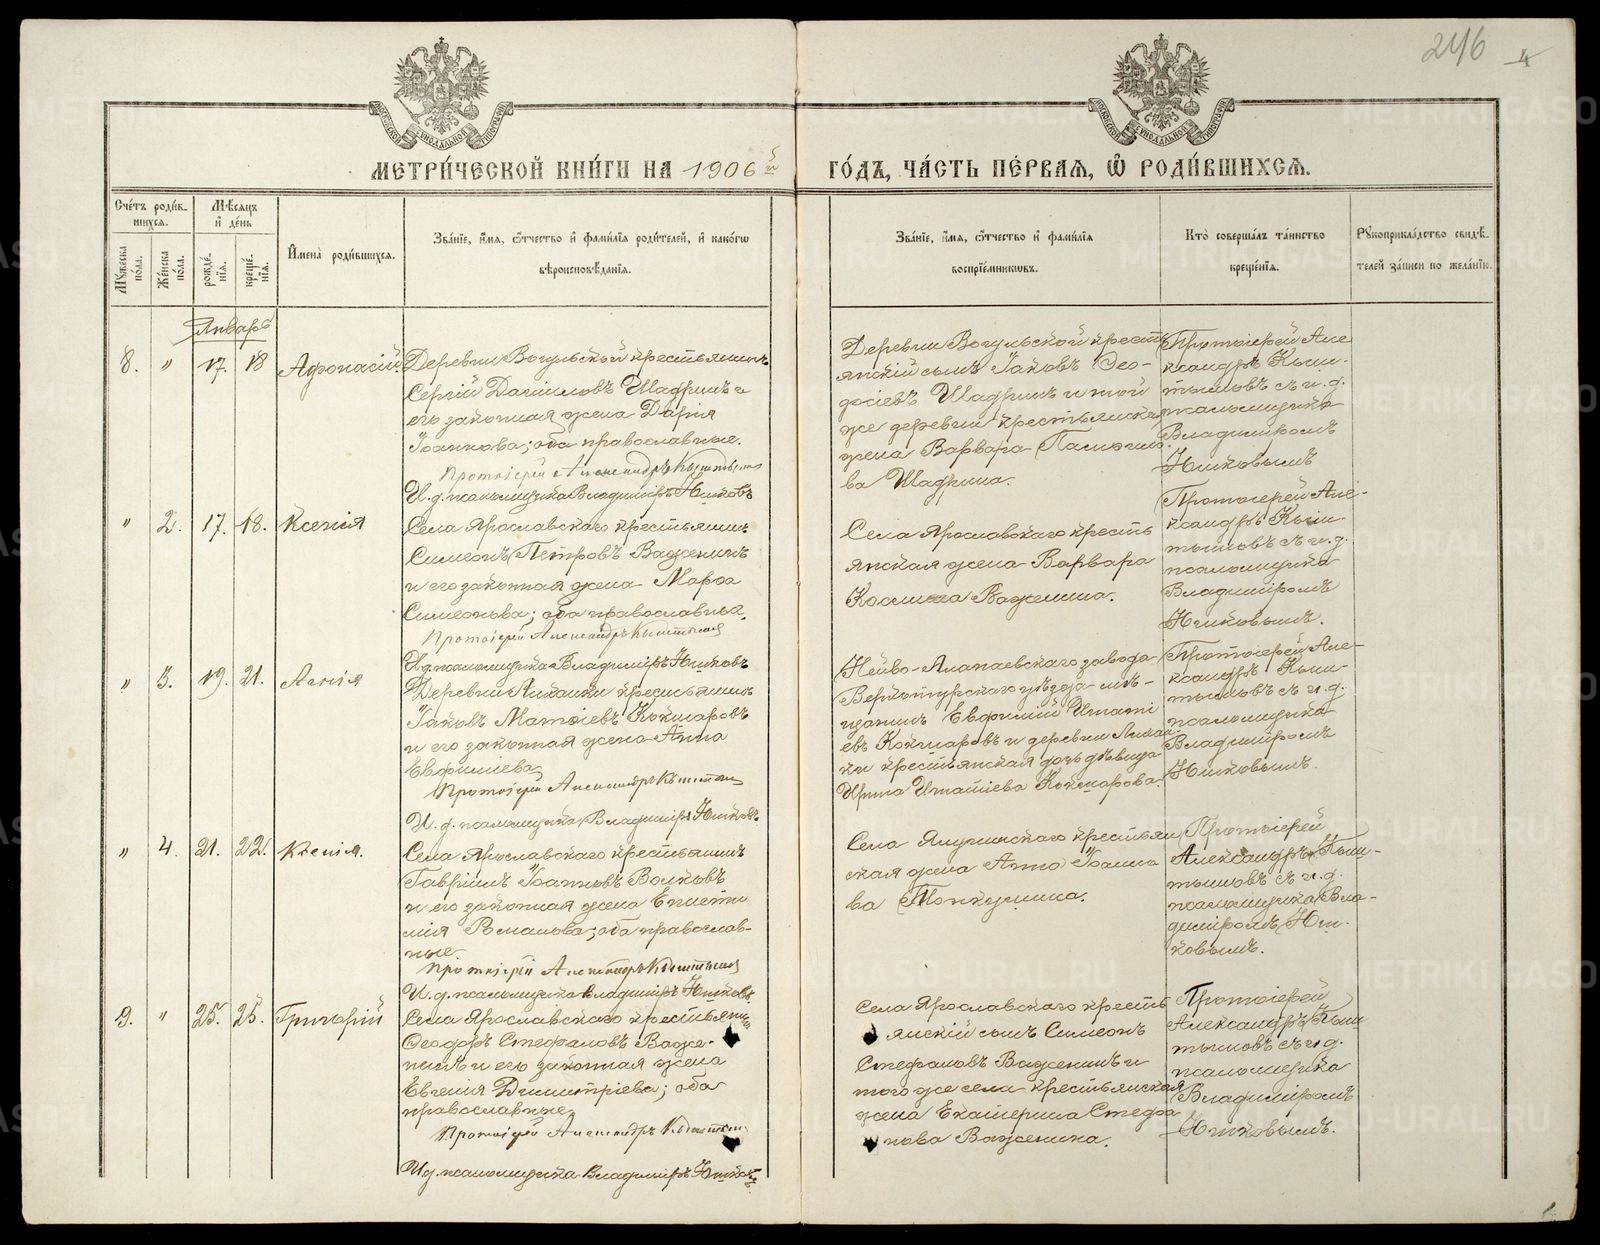 246
4
МЕТРИ́ЧЕСКОЙ КНИ́ГИ НА 1906 й
ГО́ДЪ, ЧА́СТЬ ПЕ́РВАЯ, Ѡ РОДИ́ВШИХСЯ.
Сче́тъ роди́в-
шихся.
Му́жеска по́ла.
Же́нска по́ла.
Мѣ́сяцъ
и҆ де́нь
рожде́-
нїя.
креще́-
нїя.
И҆мена̀ роди́вшихся.
Зва́нїе, и҆́мя, ѻ҆́тчество и҆ фами́лїя роди́телей, и҆ како́гѡ
вѣроисповѣ́данїя.
Зва́нїе, и҆́мя, ѻ҆́тчество и҆ фами́лїя
воспрїе́мникѡвъ.
Кто̀ соверша́лъ та́инство
креще́нїя.
Рꙋкоприкла́дство свидѣ́-
телей за́писи по жела́нїю.
Январь
8. " 17. 18 Афонасій
Деревни Вогульской крестьянинъ
Сергій Даниловъ Шадринъ и
его законная жена Дарія
Іоаннова; оба православные.
Протоіерей Александръ Кыштымов
И. д. псаломщика Владиміръ Ножковъ
Деревни Вогульской кресть
янскій сынъ Іаковъ Ѳео-
досіевъ Шадринъ и той
же деревни крестьянская
жена Варвара
ва Шадрина.
Протоіерей Але
ксандръ Кыш-
тымовъ съ и. д.
псаломщика
Владиміромъ
" 2. 17. 18. Ксенія
Села Ярославскаго крестьянинъ
Симеонъ Петровъ Важенинъ
и его законная жена Марѳа
Симеонова; оба православные.
Протоіерей Александръ Кыштымов
И. д. псаломщика Владиміръ
Села Ярославскаго кресть
янская жена Варвара
Косьмина Важенина.
Протоіерей Але-
ксандръ Кыш-
тымовъ съ и. д.
псаломщика
Владиміромъ
" 3. 19. 21. Агнія
Деревни крестьянинъ
Іаковъ Матѳіевъ Кокшаровъ
и его законная жена Анна
Евфиміева
Протоіерей Александръ Кыштымов
И. д. псаломщика Владиміръ
Нейво-Алапаевскаго завода
Верхотурскаго уѣзда мѣ-
щанинъ Евфимій Игнаті
евъ Кокшаровъ и деревни
ки крестьянская дочь дѣвица
Ирина Игнатіева Кокшарова.
Протоіерей Але-
ксандръ Кыш-
тымовъ съ и. д.
псаломщика
Владиміромъ
" 4. 21. 22. Ксенія.
Села Ярославскаго крестьянинъ
Гавріилъ Іоанновъ Волковъ
и его законная жена Еписти
мія Романова; оба православ-
ные.
Протоіерей Александръ Кыштымов
И. д. псаломщика Владиміръ
Села крестьян
ская жена Анна Іоанно
ва
Протоіерей
Александръ Кыш-
тымовъ съ и. д.
псаломщика Вла-
диміромъ
9. " 25. 25. Григорій
Села Ярославскаго крестьянинъ
Ѳеодоръ Стефановъ Важе-
нинъ и его законная жена
Евгенія Димитріева; оба
православные.
Протоіерей Александръ Кыштымов
И. д. псаломщика Владиміръ
Села Ярославскаго кресть
янскій сынъ Симеонъ
Стефановъ Важенинъ и
того же села крестьянская
жена Екатерина Стефа
нова Важенина.
Протоіерей
Александръ Кыш
тымовъ съ и. д.
псаломщика
Владиміромъ
METRIKI.GASO-URAL.RU